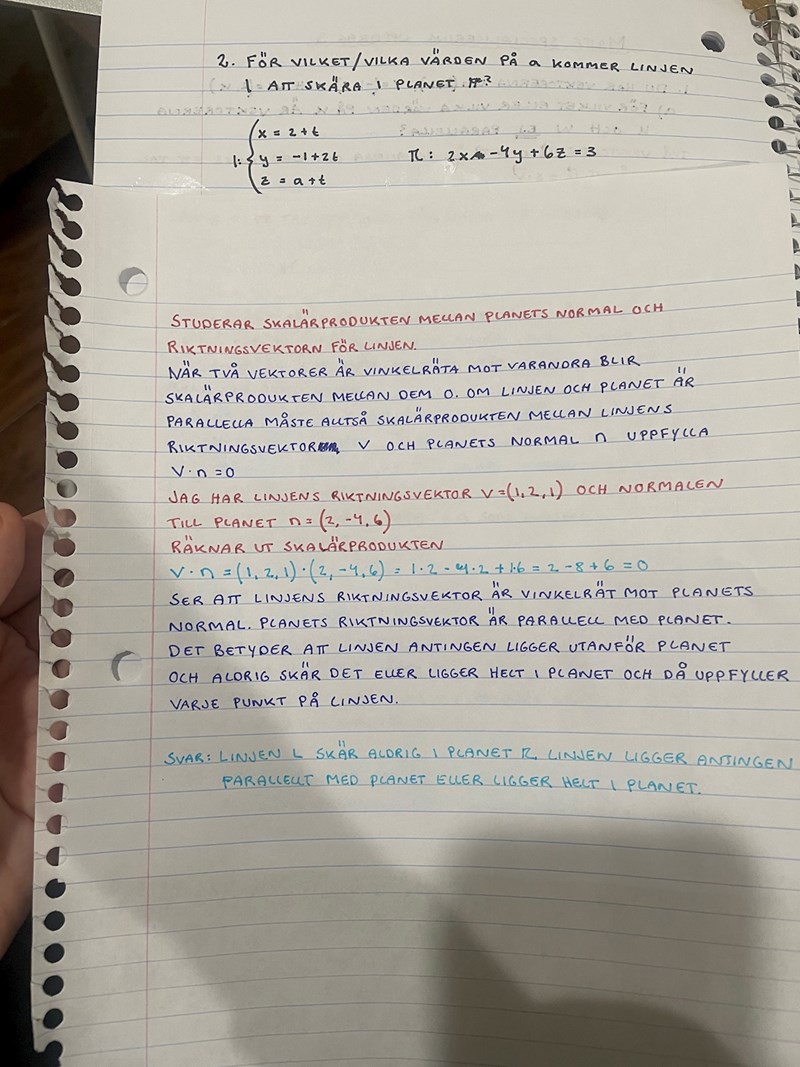 2. FÖR VILKET/VILKA VÄRDEN PÅ a KOMMER LINJEN
l ATT SKÄRA I PLANET π?
x = 2+t
l: y = -1+2t π: 2x -4y+6z = 3
z = a+t
STUDERAR SKALÄRPRODUKTEN MELLAN PLANETS NORMAL OCH
RIKTNINGSVEKTORN FÖR LINJEN.
NÄR TVÅ VEKTORER ÄR VINKELRÄTA MOT VARANDRA BLIR
SKALÄRPRODUKTEN MELLAN DEM 0. OM LINJEN OCH PLANET ÄR
PARALLELLA MÅSTE ALLTSÅ SKALÄRPRODUKTEN MELLAN LINJENS
RIKTNINGSVEKTOR V OCH PLANETS NORMAL n UPPFYLLA
V·n=0
JAG HAR LINJENS RIKTNINGSVEKTOR V=(1,2,1) OCH NORMALEN
TILL PLANET n=(2,-4,6)
RÄKNAR UT SKALÄRPRODUKTEN
V·n=(1,2,1)·(2,-4,6)=1·2-4·2+1·6=2-8+6=0
SER ATT LINJENS RIKTNINGSVEKTOR ÄR VINKELRÄT MOT PLANETS
NORMAL. PLANETS RIKTNINGSVEKTOR ÄR PARALLELL MED PLANET.
DET BETYDER ATT LINJEN ANTINGEN LIGGER UTANFÖR PLANET
OCH ALDRIG SKÄR DET ELLER LIGGER HELT I PLANET OCH DÅ UPPFYLLER
VARJE PUNKT PÅ LINJEN.
SVAR: LINJEN L SKÄR ALDRIG I PLANET π, LINJEN LIGGER ANTINGEN
PARALLELLT MED PLANET ELLER LIGGER HELT I PLANET.